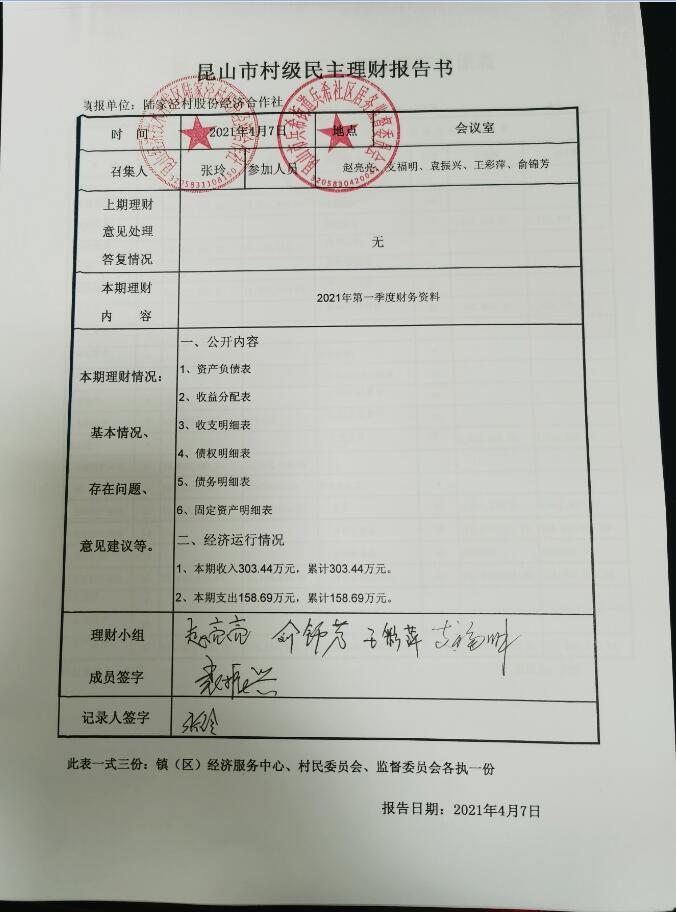 昆山市村级民主理财报告书
填报单位：陆家泾村股份经济合作社
时 间 2021年4月7日 地点 会议室
召集人 张玲 参加人员 赵亮亮、支福明、袁振兴、王彩萍、俞锦芳
上期理财
意见处理
答复情况
无
本期理财
内 容
2021年第一季度财务资料
本期理财情况：
基本情况、
存在问题、
意见建议等。
一、公开内容
1、资产负债表
2、收益分配表
3、收支明细表
4、债权明细表
5、债务明细表
6、固定资产明细表
二、经济运行情况
1、本期收入303.44万元，累计303.44万元。
2、本期支出158.69万元，累计158.69万元。
理财小组
成员签字
赵亮亮 俞锦芳 王彩萍 支福明
袁振兴
记录人签字 张玲
此表一式三份：镇（区）经济服务中心、村民委员会、监督委员会各执一份
报告日期：2021年4月7日